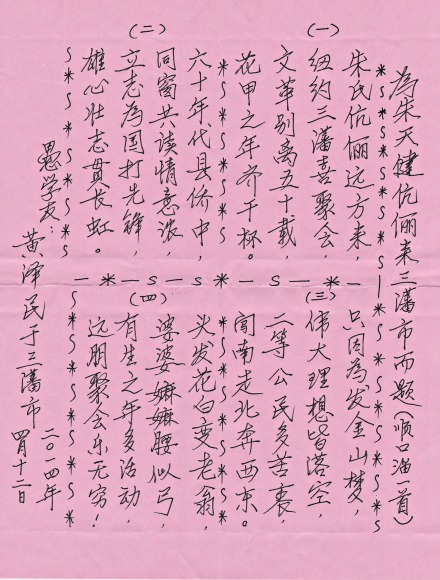 為朱天健伉俪来三藩市而题(顺口油一首)
(一)
朱氏伉俪远方来,
纽约三藩喜聚会,
文革别离五十载,
花甲之年齐干杯。
(二)
六十年代县侨中,
同窗共读情意浓,
立志為国打先锋,
雄心壮志贯长虹。
(三)
只因為发金山梦,
伟大理想皆落空
二等公民多苦衷,
闯南走北奔西东。
(四)
头发花白变老翁,
婆婆嫲嫲腰似弓,
有生之年多活动,
远朋聚会乐无穷!
愚学友:
黄泽民于三藩市
二〇一四年
四月十二日